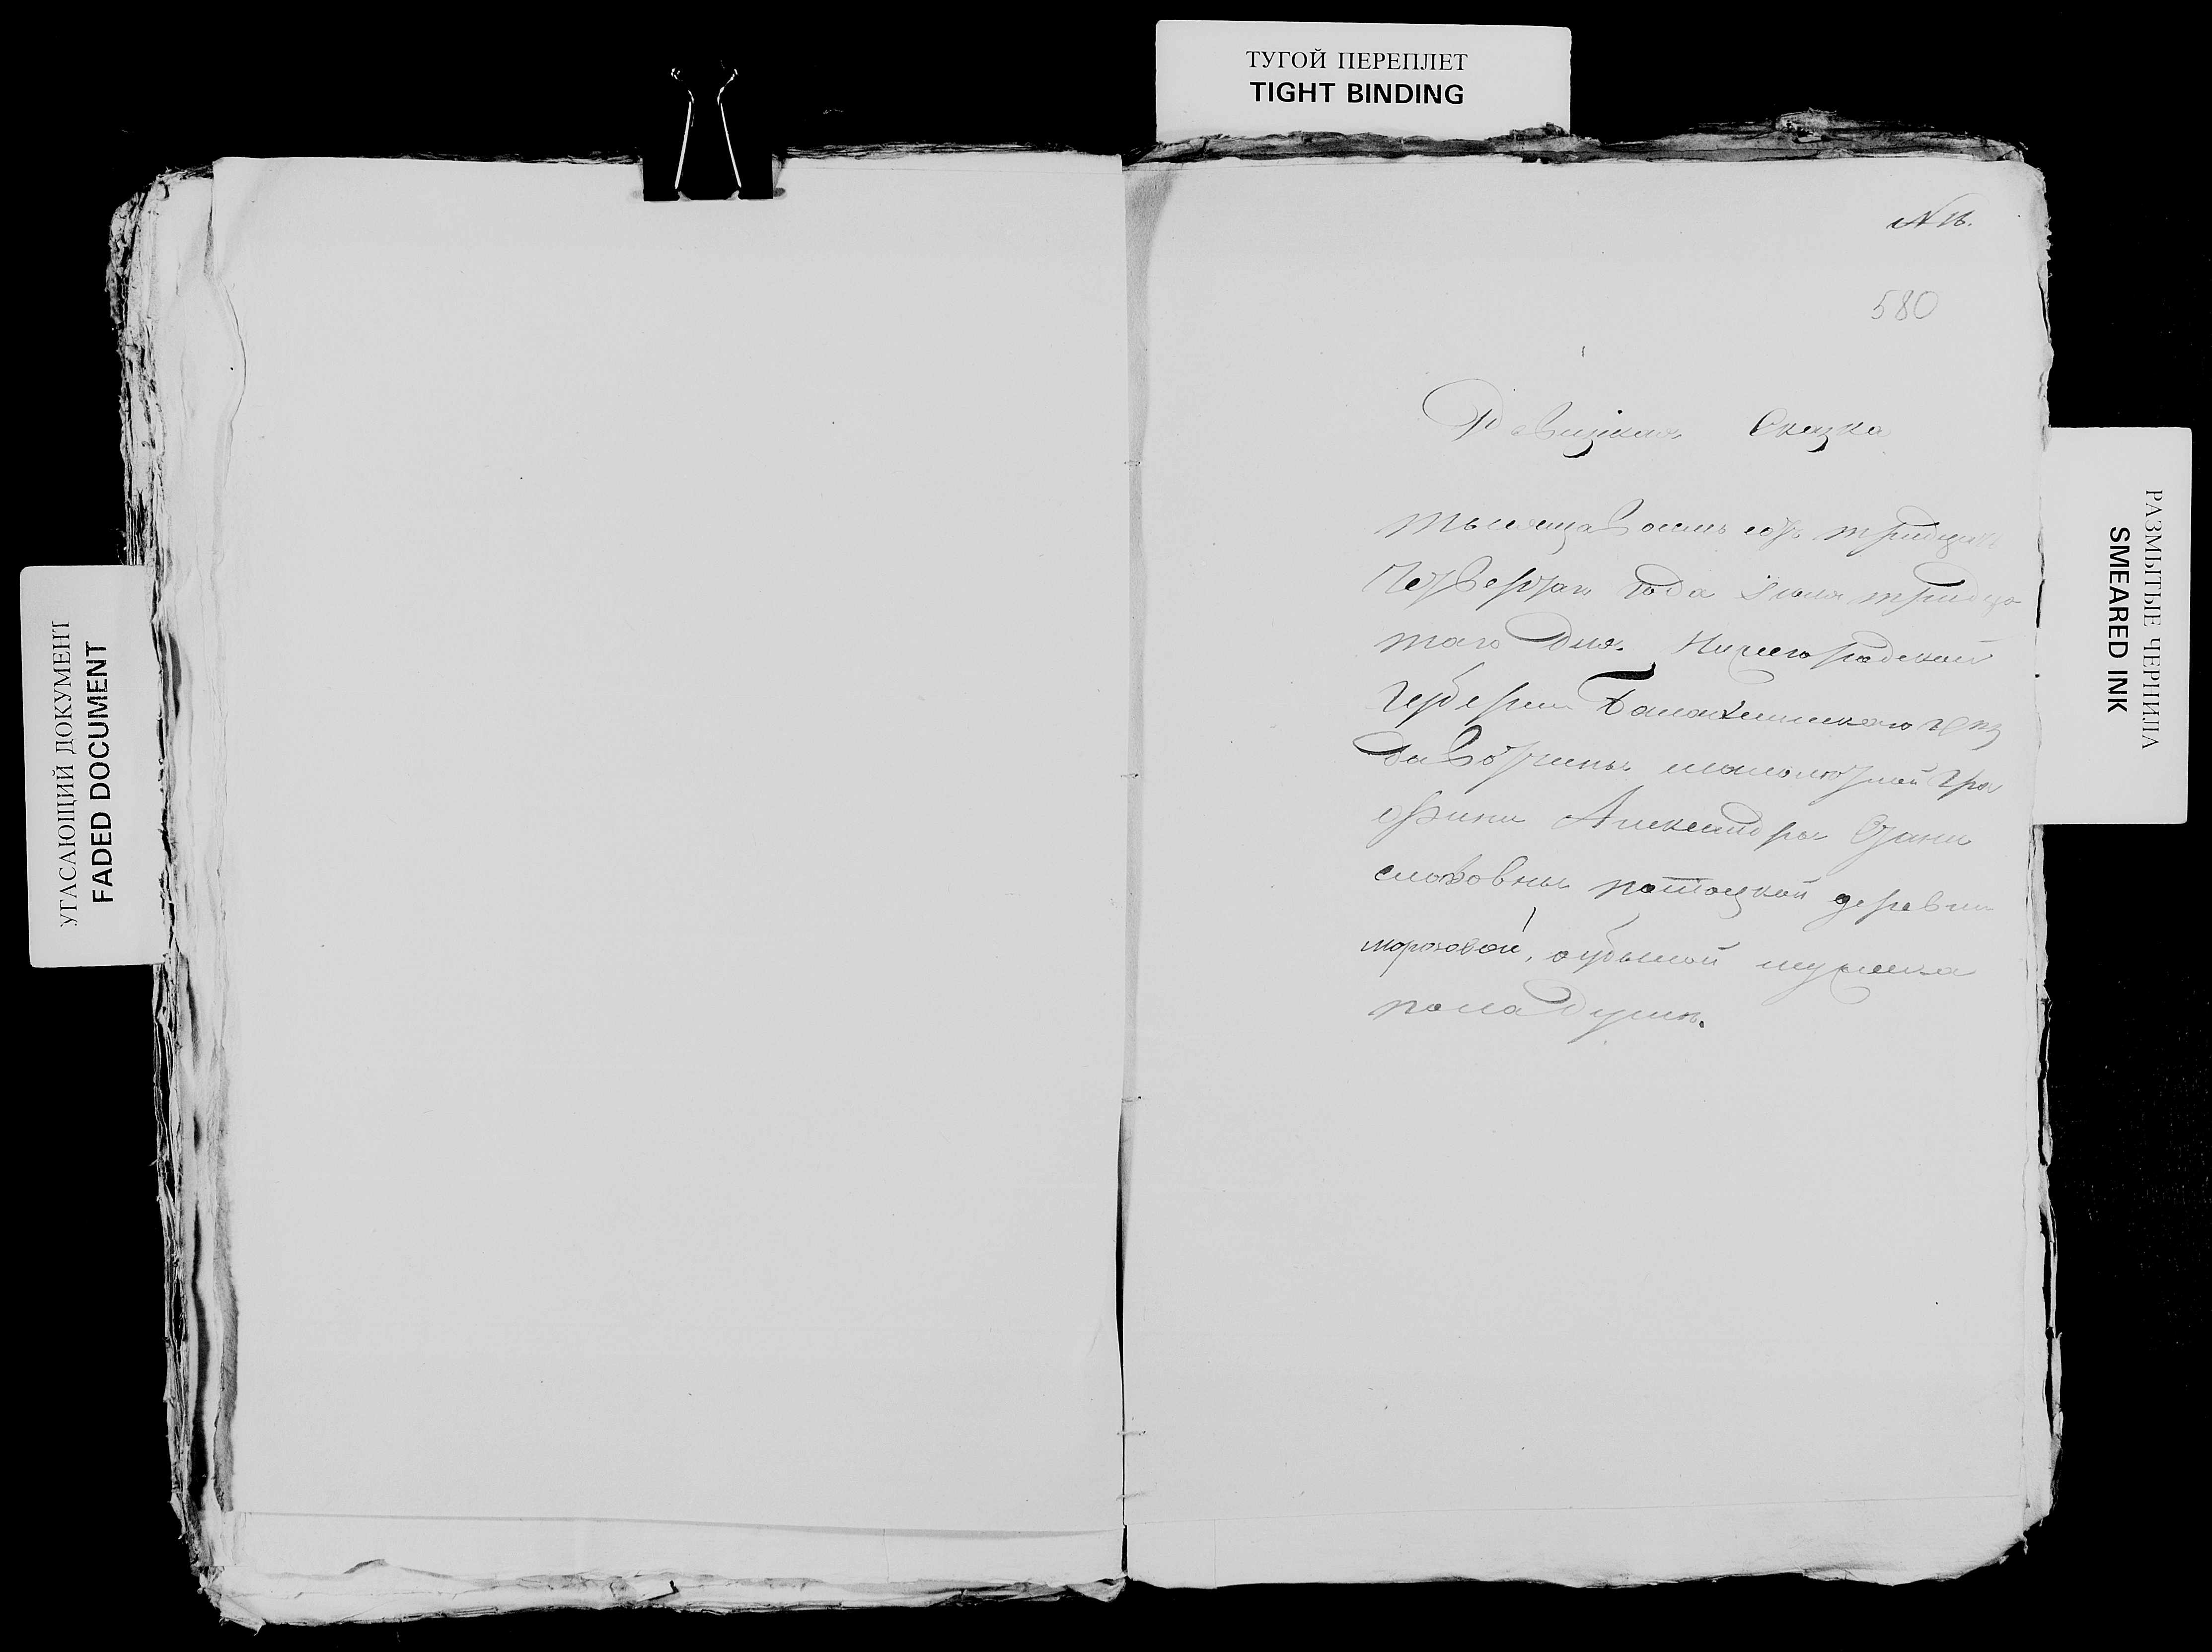 ТУГОЙ ПЕРЕПЛЕТ
TIGHT BINDING
УГАСАЮЩИЙ ДОКУМЕНТ
FADED DOCUMENT
РАЗМЫТЫЕ ЧЕРНИЛА
SMEARED INK
N 16.
580
Ревизкая Сказка
тысяща восемь сотъ тридцать
четвертаго года Iюля тридца
таго дня. Нижегородской
губернии Балахнинского уѣз
да вотчины малолютной гра
фини Александры Стани
славовны потоцкой деревни
морозовой, о убылой мужска
пола душъ.